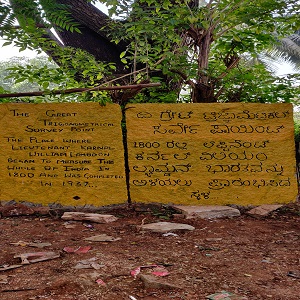 The Great
Trigonometrical
Survey Point
The Place where
Lieutenant Karnal
William Lambdon
began to measure the
whole of India in
1800 and was completed
in 1962.
ದಿ ಗ್ರೇಟ್
ಸರ್ವೇ ಪಾಯಿಂಟ್
1800 ರಲ್ಲಿ ಲೆಫ್ಟಿನೆಂಟ್
ಕರ್ನಲ್ ವಿಲಿಯಂ
ಲ್ಯಾಮ್ಟನ್ ಭಾರತವನ್ನು
ಅಳೆಯಲು ಪ್ರಾರಂಭಿಸಿದ
ಸ್ಥಳ